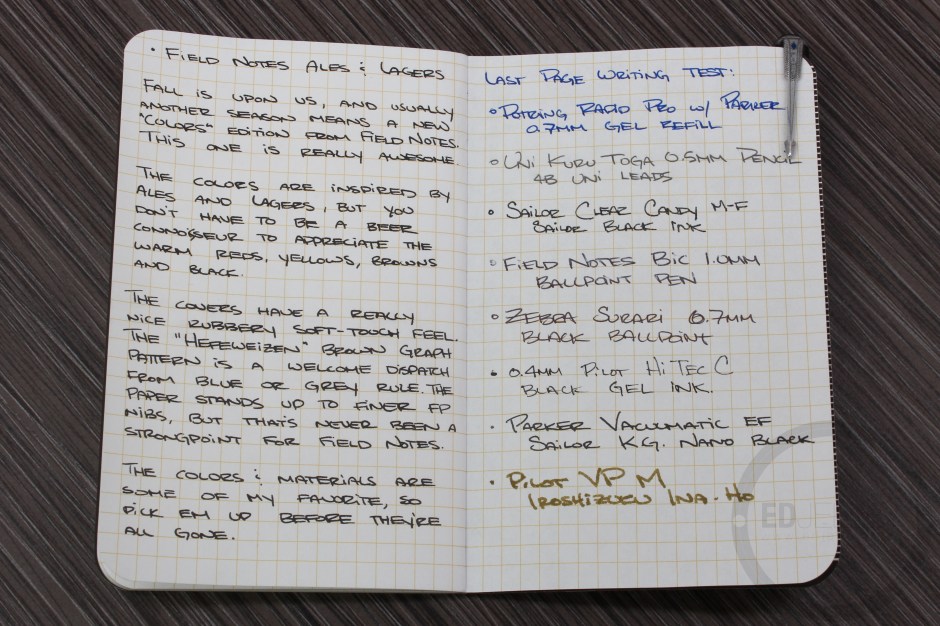 • Field Notes Ales & Lagers
Fall is upon us, and usually
another season means a new
"Colors" edition from Field Notes.
This one is really awesome.
The colors are inspired by
ales and lagers, but you
don't have to be a beer
connoisseur to appreciate the
warm reds, yellows, browns
and black.
The covers have a really
nice rubbery soft-touch feel.
The "Hefeweizen" brown graph
pattern is a welcome dispatch
from blue or grey rule. The
paper stands up to finer FP
nibs, but that's never been a
strongpoint for Field Notes.
The colors & materials are
some of my favorite, so
pick em up before they're
all gone.
Last Page Writing Test:
• Rotring Rapid Pro w/ Parker
0.7mm Gel Refill
• Uni Kuru Toga 0.5mm Pencil
4B Uni Leads
• Sailor Clear Candy M-F
Sailor Black Ink
• Field Notes Bic 1.0mm
Ballpoint Pen
• Zebra Surari 0.7mm
Black Ballpoint
• 0.4mm Pilot HiTec C
Black Gel Ink.
• Parker Vacumatic EF
Sailor K.G. Nano Black
• Pilot VP M
Iroshizuku Ina-Ho